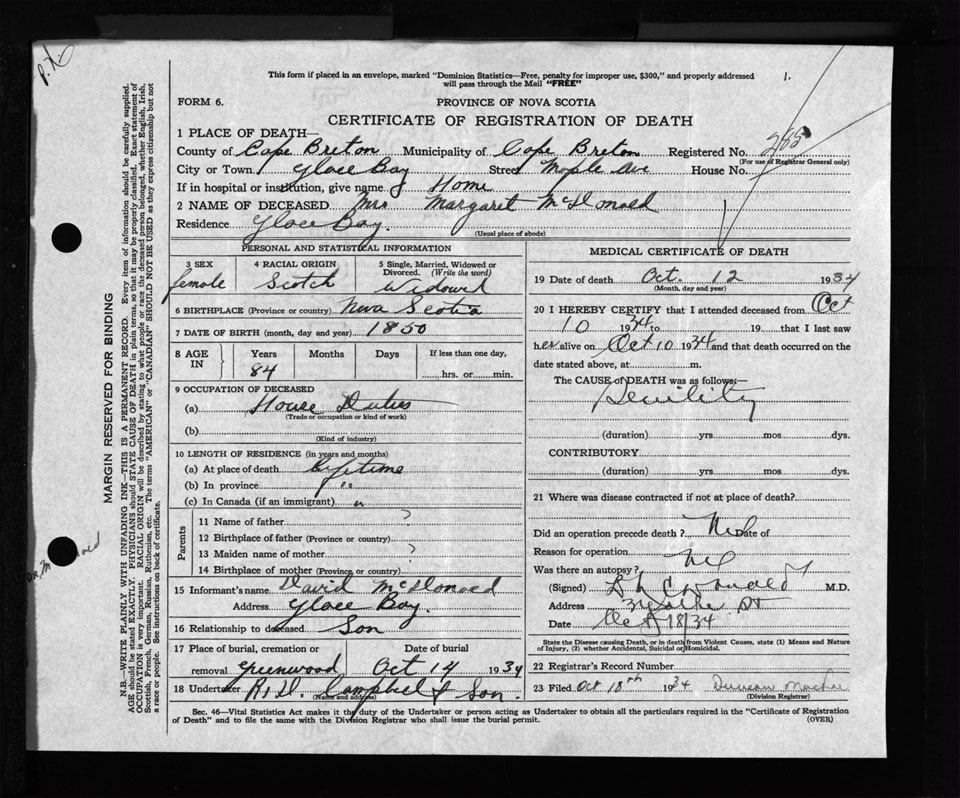 P.X.
This form if placed in an envelope, marked "Dominion Statistics—Free, penalty for improper use, $300," and properly addressed
will pass through the Mail "FREE"
1.
FORM 6.
PROVINCE OF NOVA SCOTIA
CERTIFICATE OF REGISTRATION OF DEATH
1 PLACE OF DEATH—
County of Cape Breton Municipality of Cape Breton Registered No. 285
(For use of Registrar General only)
City or Town Glace Bay Street Maple Ave House No.
If in hospital or institution, give name Home
2 NAME OF DECEASED Mrs Margaret McDonald
Residence Glace Bay.
(Usual place of abode)
PERSONAL AND STATISTICAL INFORMATION
3 SEX 4 RACIAL ORIGIN 5 Single, Married, Widowed or Divorced. (Write the word)
female Scotch Widowed
6 BIRTHPLACE (Province or country) Nova Scotia
7 DATE OF BIRTH (month, day and year) 1850
8 AGE IN Years Months Days If less than one day,
84 hrs. or min.
9 OCCUPATION OF DECEASED
(a) House Duties
(Trade or occupation or kind of work)
(b)
(Kind of industry)
10 LENGTH OF RESIDENCE (in years and months)
(a) At place of death lifetime
(b) In province
(c) In Canada (if an immigrant)
Parents
11 Name of father ?
12 Birthplace of father (Province or country)
13 Maiden name of mother ?
14 Birthplace of mother (Province or country)
15 Informant's name David McDonald
Address Glace Bay.
16 Relationship to deceased Son
17 Place of burial, cremation or removal Date of burial
Greenwood Oct 14 1934
18 Undertaker Campbell & Son.
(Name and address)
MEDICAL CERTIFICATE OF DEATH
19 Date of death Oct. 12 1934
(Month, day and year)
20 I HEREBY CERTIFY that I attended deceased from Oct
10 1934 to 19 that I last saw
her alive on Oct 10 1934 and that death occurred on the
date stated above, at m.
The CAUSE of DEATH was as follows:—
Senility
(duration) yrs. mos. dys.
CONTRIBUTORY
(duration) yrs. mos. dys.
21 Where was disease contracted if not at place of death?
Did an operation precede death? No Date of
Reason for operation
Was there an autopsy? No
(Signed) M.D.
Address
Date Oct 18/34
State the Disease causing Death, or in death from Violent Causes, state (1) Means and Nature
of Injury, (2) whether Accidental, Suicidal or Homicidal.
22 Registrar's Record Number
23 Filed Oct 18th 1934 Duncan
(Division Registrar)
Sec. 46—Vital Statistics Act makes it the duty of the Undertaker or person acting as Undertaker to obtain all the particulars required in the "Certificate of Registration
of Death" and to file the same with the Division Registrar who shall issue the burial permit. (OVER)
MARGIN RESERVED FOR BINDING
N.B.—WRITE PLAINLY WITH UNFADING INK—THIS IS A PERMANENT RECORD. Every item of information should be carefully supplied.
AGE should be stated EXACTLY. PHYSICIANS should STATE CAUSE OF DEATH in plain terms, so that it may be properly classified. Exact statement of
OCCUPATION is very important. RACIAL ORIGIN will be described by stating to what people or race the deceased person belonged, whether English, Irish,
Scottish, French, German, Russian, Ruthenian, etc. The terms "AMERICAN" or "CANADIAN" SHOULD NOT BE USED as they express citizenship but not
a race or people. See instructions on back of certificate.